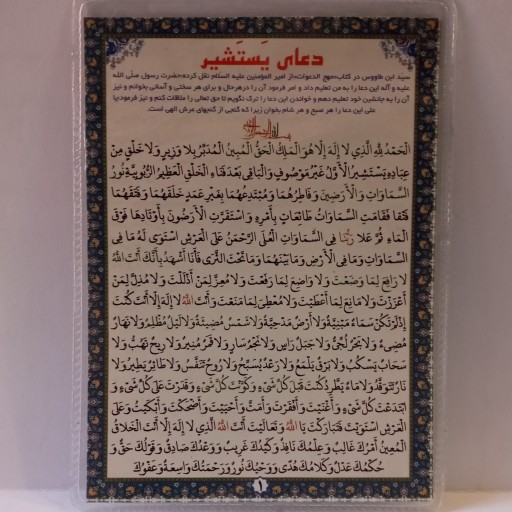 دعای یَستَشیر
سیّد ابن طاووس در کتاب«مهج الدعوات»از امیر المؤمنین علیه السلام نقل کرده:حضرت رسول صلّی الله
علیه و آله این دعا را به من تعلیم داد و امر فرمود آن را درهرحال و برای هر سختی و آسانی بخوانم و نیز
آن را به جانشین خود تعلیم دهم و خواندن این دعا را ترک نگویم تا حق تعالی را ملاقات کنم و نیز فرمود:یا
علی این دعا را هر صبح و هر شام بخوان زیرا که گنجی از گنجهای عرش الهی است.
اَلْحَمْدُ لِلّٰهِ الَّذِي لا إِلهَ إِلّا هُوَ الْمَلِكُ الْحَقُّ الْمُبِينُ الْمُدَبِّرُ بِلا وَزِيرٍ وَلا خَلْقٍ مِنْ
عِبادِهِ يَسْتَشِيرُ الْأَوَّلُ غَيْرُ مَوْصُوفٍ وَالْباقِي بَعْدَ فَناءِ الْخَلْقِ الْعَظِيمُ الرُّبُوبِيَّةِ نُورُ
السَّماواتِ وَالْأَرَضِينَ وَفاطِرُهُما وَمُبْتَدِعُهُما بِغَيْرِ عَمَدٍ خَلَقَهُما وَفَتَقَهُما
فَتْقاً فَقامَتِ السَّماواتُ طائِعاتٍ بِأَمْرِهِ وَاسْتَقَرَّتِ الْأَرَضُونَ بِأَوْتادِها فَوْقَ
الْماءِ ثُمَّ عَلا رَبُّنا فِي السَّماواتِ الْعُلىٰ الرَّحْمنُ عَلَى الْعَرْشِ اسْتَوىٰ لَهُ ما فِي
السَّماواتِ وَما فِي الْأَرْضِ وَما بَيْنَهُما وَما تَحْتَ الثَّرىٰ فَأَنَا أَشْهَدُ بِأَنَّكَ أَنْتَ اللّٰهُ
لا رافِعَ لِما وَضَعْتَ وَلا واضِعَ لِما رَفَعْتَ وَلا مُعِزَّ لِمَنْ أَذْلَلْتَ وَلا مُذِلَّ لِمَنْ
أَعْزَزْتَ وَلا مانِعَ لِما أَعْطَيْتَ وَلا مُعْطِيَ لِما مَنَعْتَ وَأَنْتَ اللّٰهُ لا إِلهَ إِلّا أَنْتَ كُنْتَ
إِذْ لَمْ تَكُنْ سَماءٌ مَبْنِيَّةٌ وَلا أَرْضٌ مَدْحِيَّةٌ وَلا شَمْسٌ مُضِيئَةٌ وَلا لَيْلٌ مُظْلِمٌ وَلا نَهارٌ
مُضِيءٌ وَلا بَحْرٌ لُجِّيٌّ وَلا جَبَلٌ راسٍ وَلا نَجْمٌ سارٍ وَلا قَمَرٌ مُنِيرٌ وَلا رِيحٌ تَهُبُّ وَلا
سَحابٌ يَسْكُبُ وَلا بَرْقٌ يَلْمَعُ وَلا رَعْدٌ يُسَبِّحُ وَلا رُوحٌ تَنَفَّسُ وَلا طائِرٌ يَطِيرُ وَلا
نارٌ تَتَوَقَّدُ وَلا ماءٌ يَطَّرِدُ كُنْتَ قَبْلَ كُلِّ شَيْءٍ وَكَوَّنْتَ كُلَّ شَيْءٍ وَقَدَرْتَ عَلىٰ كُلِّ شَيْءٍ وَ
ابْتَدَعْتَ كُلَّ شَيْءٍ وَأَغْنَيْتَ وَأَفْقَرْتَ وَأَمَتَّ وَأَحْيَيْتَ وَأَضْحَكْتَ وَأَبْكَيْتَ وَعَلَى
الْعَرْشِ اسْتَوَيْتَ فَتَبارَكْتَ يَا اللّٰهُ وَتَعالَيْتَ أَنْتَ اللّٰهُ الَّذِي لا إِلهَ إِلّا أَنْتَ الْخَلّاقُ
الْمُعِينُ أَمْرُكَ غالِبٌ وَعِلْمُكَ نافِذٌ وَكَيْدُكَ غَرِيبٌ وَوَعْدُكَ صادِقٌ وَقَوْلُكَ حَقٌّ وَ
حُكْمُكَ عَدْلٌ وَكَلامُكَ هُدىً وَوَحْيُكَ نُورٌ وَرَحْمَتُكَ واسِعَةٌ وَعَفْوُكَ
١